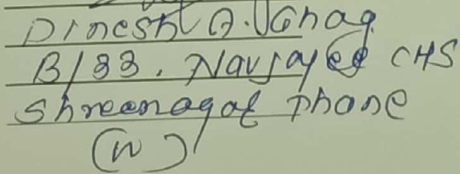 Dinesh A. Ghag
B/33, Navjay CHS
Shreenagar Thane
(W)